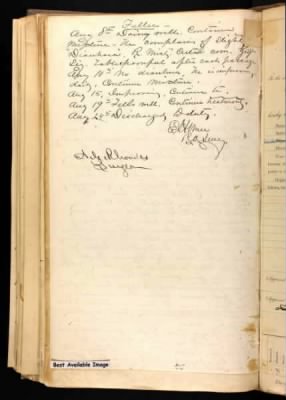 Aug 8th Doing well. Continue
Mixture. He complains of slight
Diarrhoea. R Mist. Creta Com.
Sig. Tablespoonful after each passage
Aug 10th No diarrhoea, he is improving
daily, Continue Mixture.
Aug 15, Improving. Continue tr.
Aug 19th Feels well. Continue treatment,
Aug 24th Discharged to duty.
A. G. Rhoades
Surgeon
Best Available Image